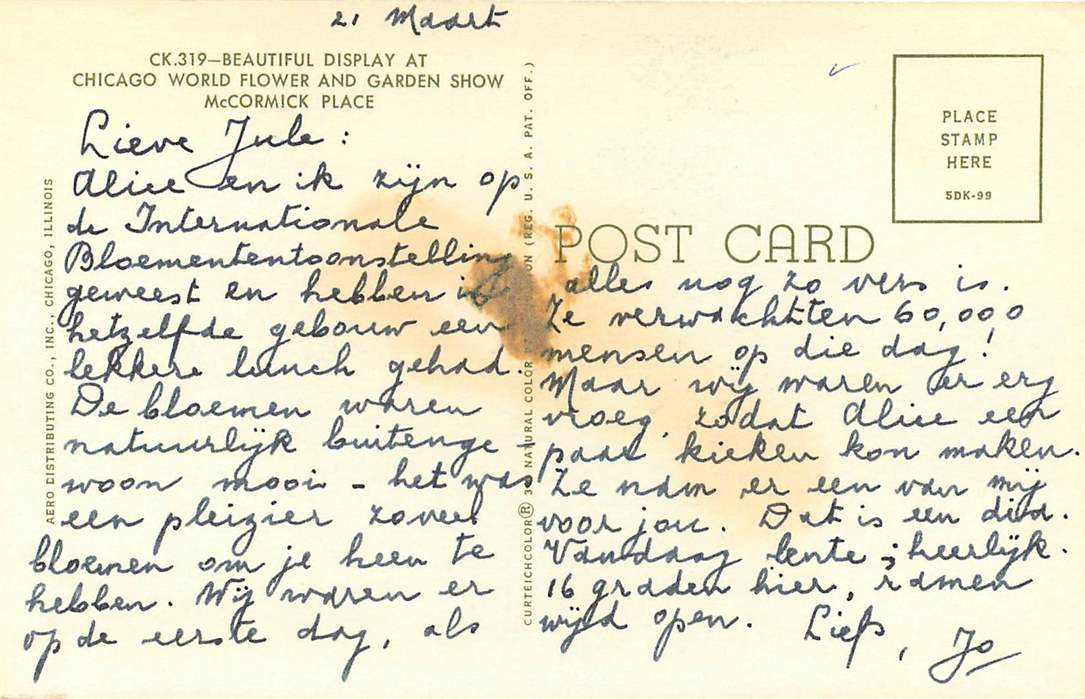 21 Maart
CK.319—BEAUTIFUL DISPLAY AT
CHICAGO WORLD FLOWER AND GARDEN SHOW
McCORMICK PLACE
Lieve Jule:
Alice en ik zijn op
de Internationale
Bloemententoonstelling
geweest en hebben in
hetzelfde gebouw een
lekkere lunch gehad.
De bloemen waren
natuurlijk buitenge-
woon mooi - het was
een pleizier zoveel
bloemen om je heen te
hebben. Wij waren er
op de eerste dag, als
AERO DISTRIBUTING CO., INC., CHICAGO, ILLINOIS
CURTEICHCOLOR® 3 NATURAL COLOR (REG. U. S. A. PAT. OFF.)
PLACE
STAMP
HERE
5DK-99
POST CARD
alles nog zo vers is.
Ze verwachtten 60,000
mensen op die dag!
Maar wij waren er erg
vroeg, zodat Alice een
paar kieken kon maken.
Ze nam er een van mij
voor jou. Dat is een dia.
Vandaag lente; heerlijk.
16 graden hier, ramen
wijd open. Liefs, Jo